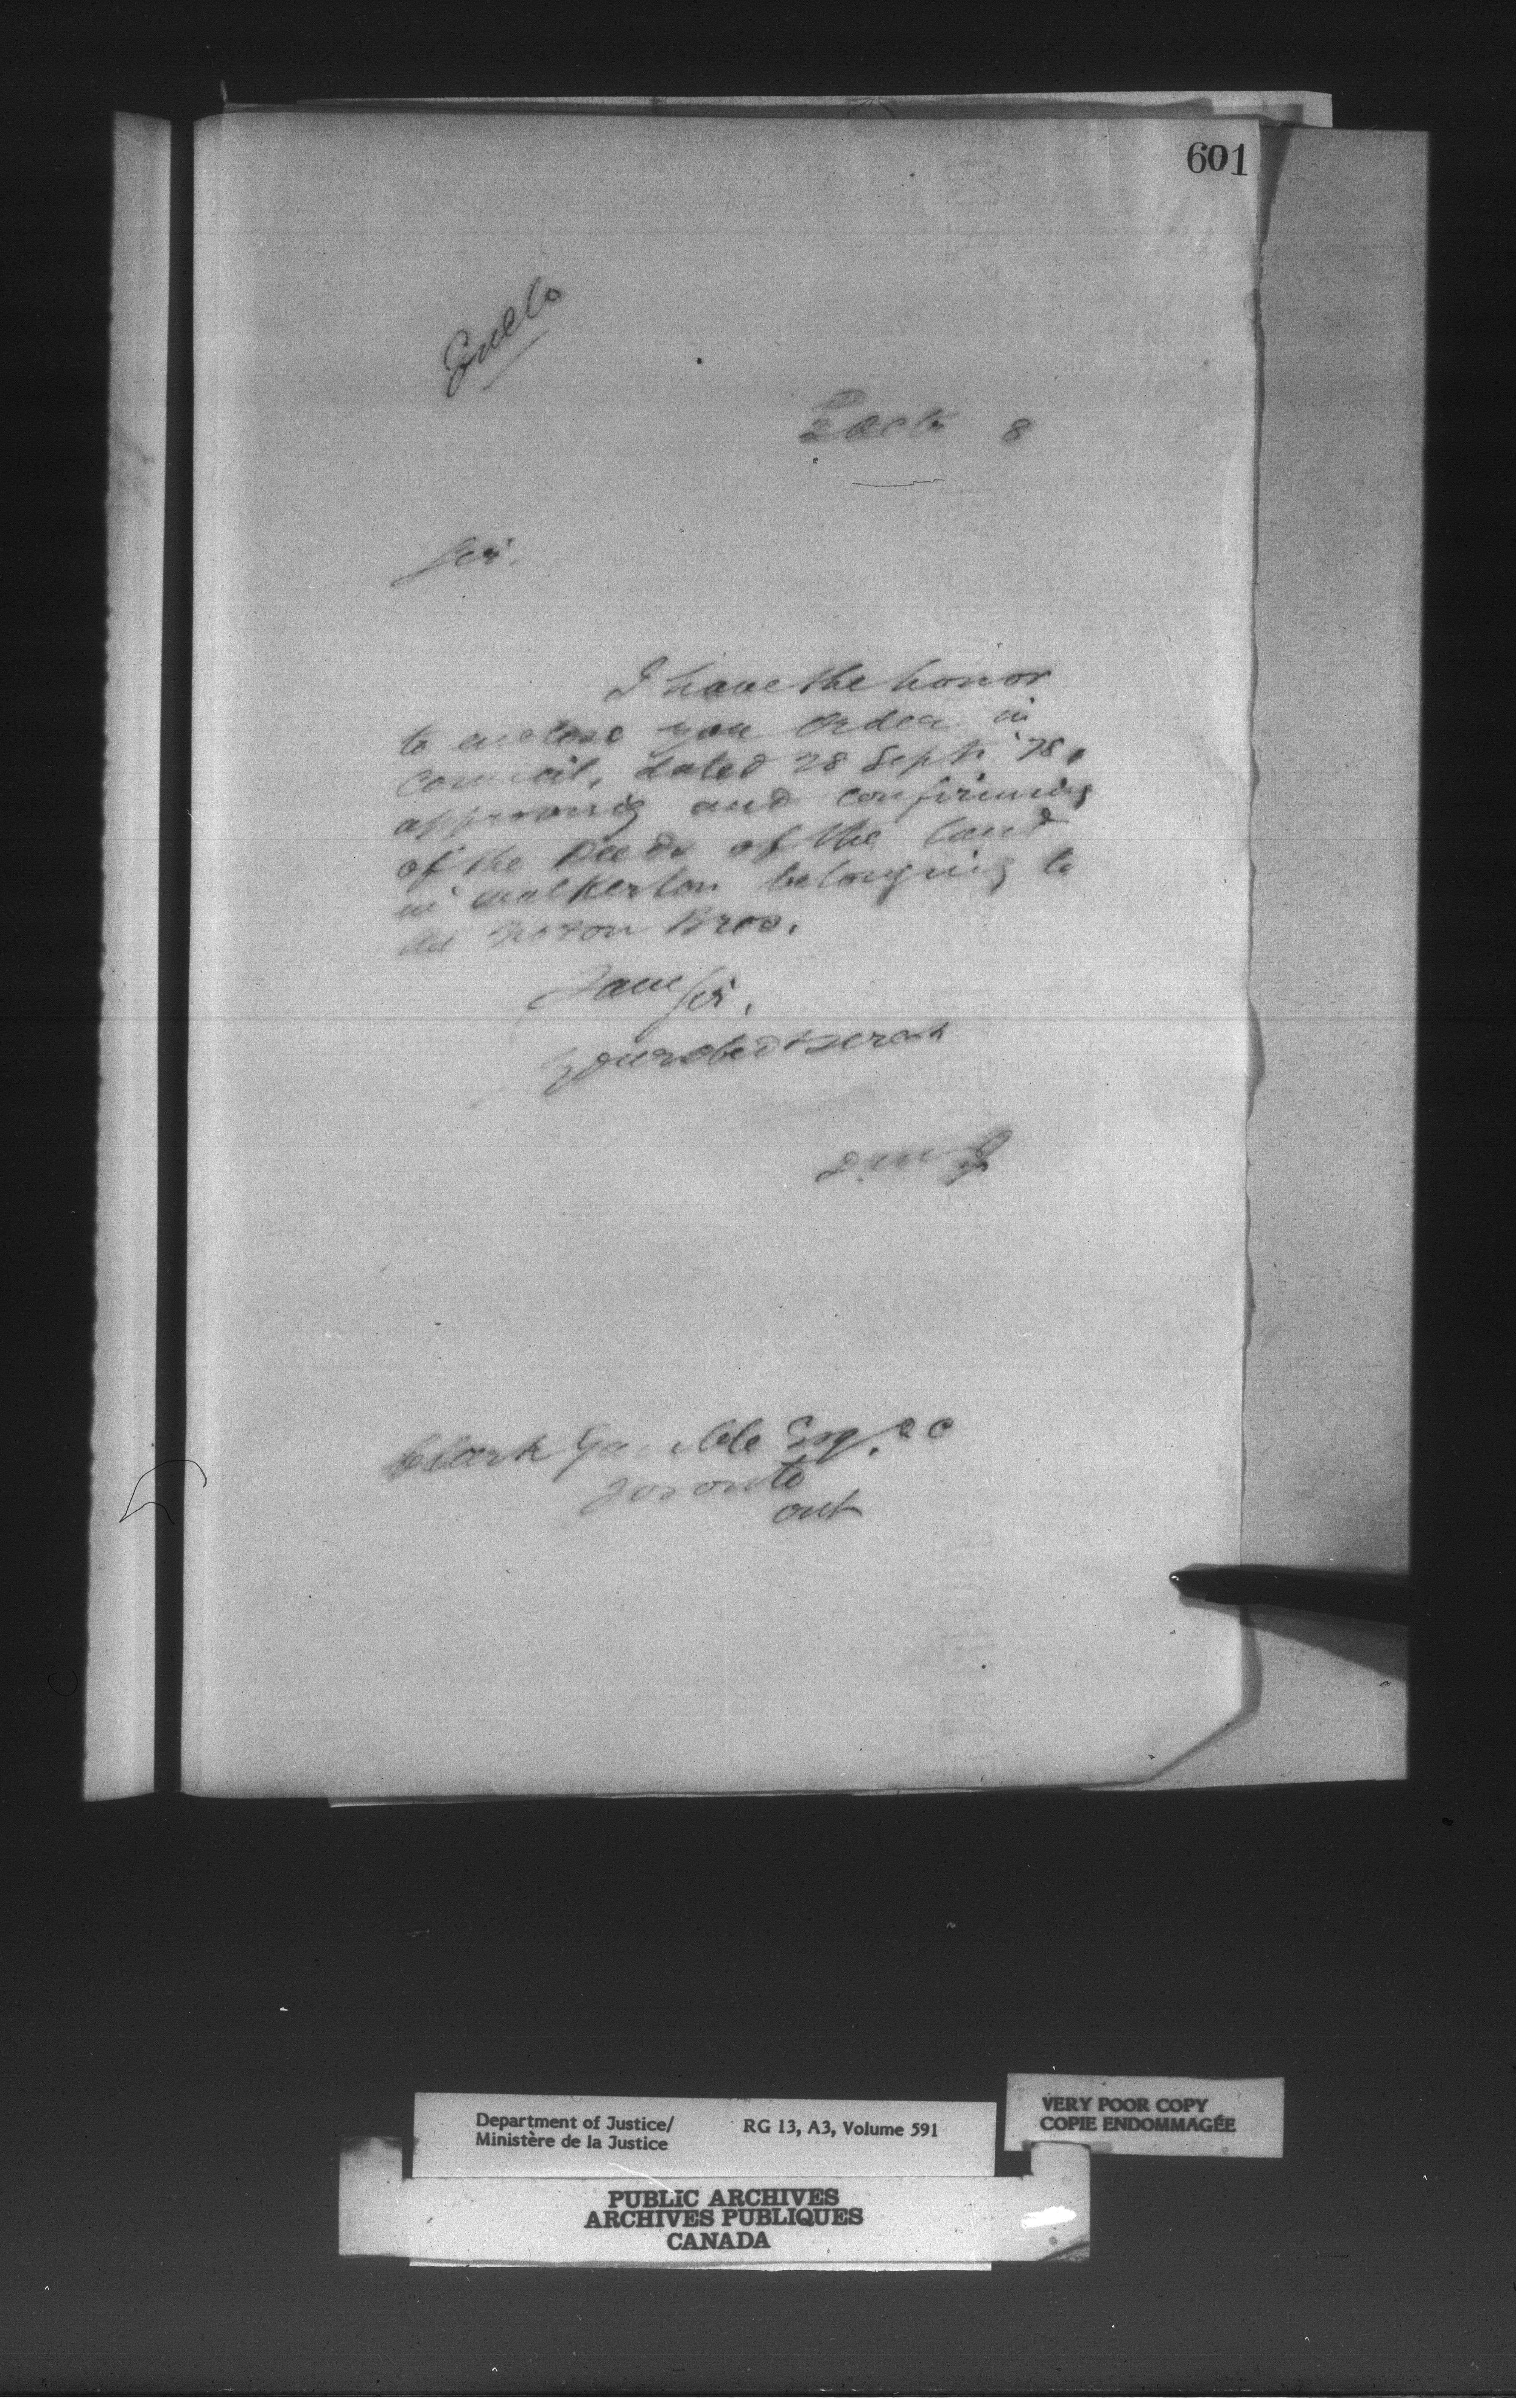 601
Enclo
2 Octr 8
Sir.
I have the honor
to enclose you Order in
Council, dated 28 Septr '78,
approving and confirming
of the Deeds of the land
in Walkerton belonging to
the Noxon Bros.
I am Sir,
Your obedt servt
D.M.J
Clark Gamble Esq. QC
Toronto
Ont
Department of Justice/
Ministère de la Justice
RG 13, A3, Volume 591
VERY POOR COPY
COPIE ENDOMMAGÉE
PUBLIC ARCHIVES
ARCHIVES PUBLIQUES
CANADA